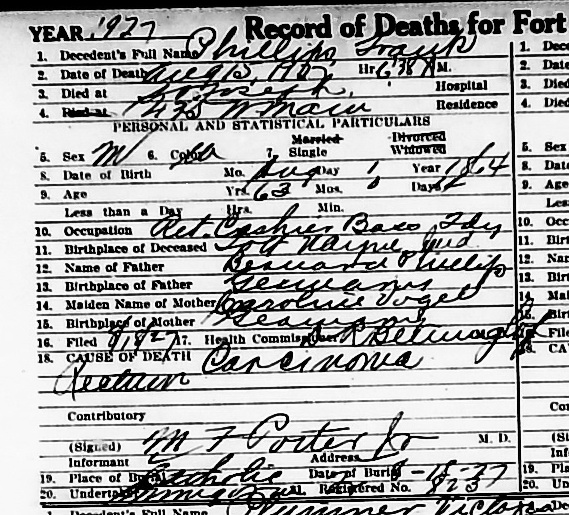 YEAR 1927 Record of Deaths for Fort
1. Decedent's Full Name Phillips, Frank
2. Date of Death Aug 15, 1927 Hr. 6:38 A M.
3. Died at St Joseph Hospital
4. Died at W Main Residence
PERSONAL AND STATISTICAL PARTICULARS
Married Divorced
5. Sex M 6. Color 7. Single Widowed
8. Date of Birth Mo. Aug Day 1 Year 1864
9. Age Yrs. 63 Mos. 0 Days
Less than a Day Hrs. Min.
10. Occupation Ret. Cashier Bass Fdy
11. Birthplace of Deceased Fort Wayne Ind
12. Name of Father Bernard Phillips
13. Birthplace of Father Germany
14. Maiden Name of Mother Caroline Vogel
15. Birthplace of Mother Germany
16. Filed 17. Health Commissioner
18. CAUSE OF DEATH Carcinoma
Rectum
Contributory
(Signed) M F Porter Jr M. D.
Informant Address
19. Place of Burial Catholic Date of Burial 8-18-27
20. Undertaker Registered No. 823
1. Decedent's Full Name Plummer Victor
1. Dece
2. Date
3. Died
4. Died
5. Sex
8. Date
9. Age
Less
10. Occu
11. Birt
12. Nan
13. Birt
14. Mai
15. Birt
16. Filed
18. CA
Con
(Si
Info
19. Pla
20. Un